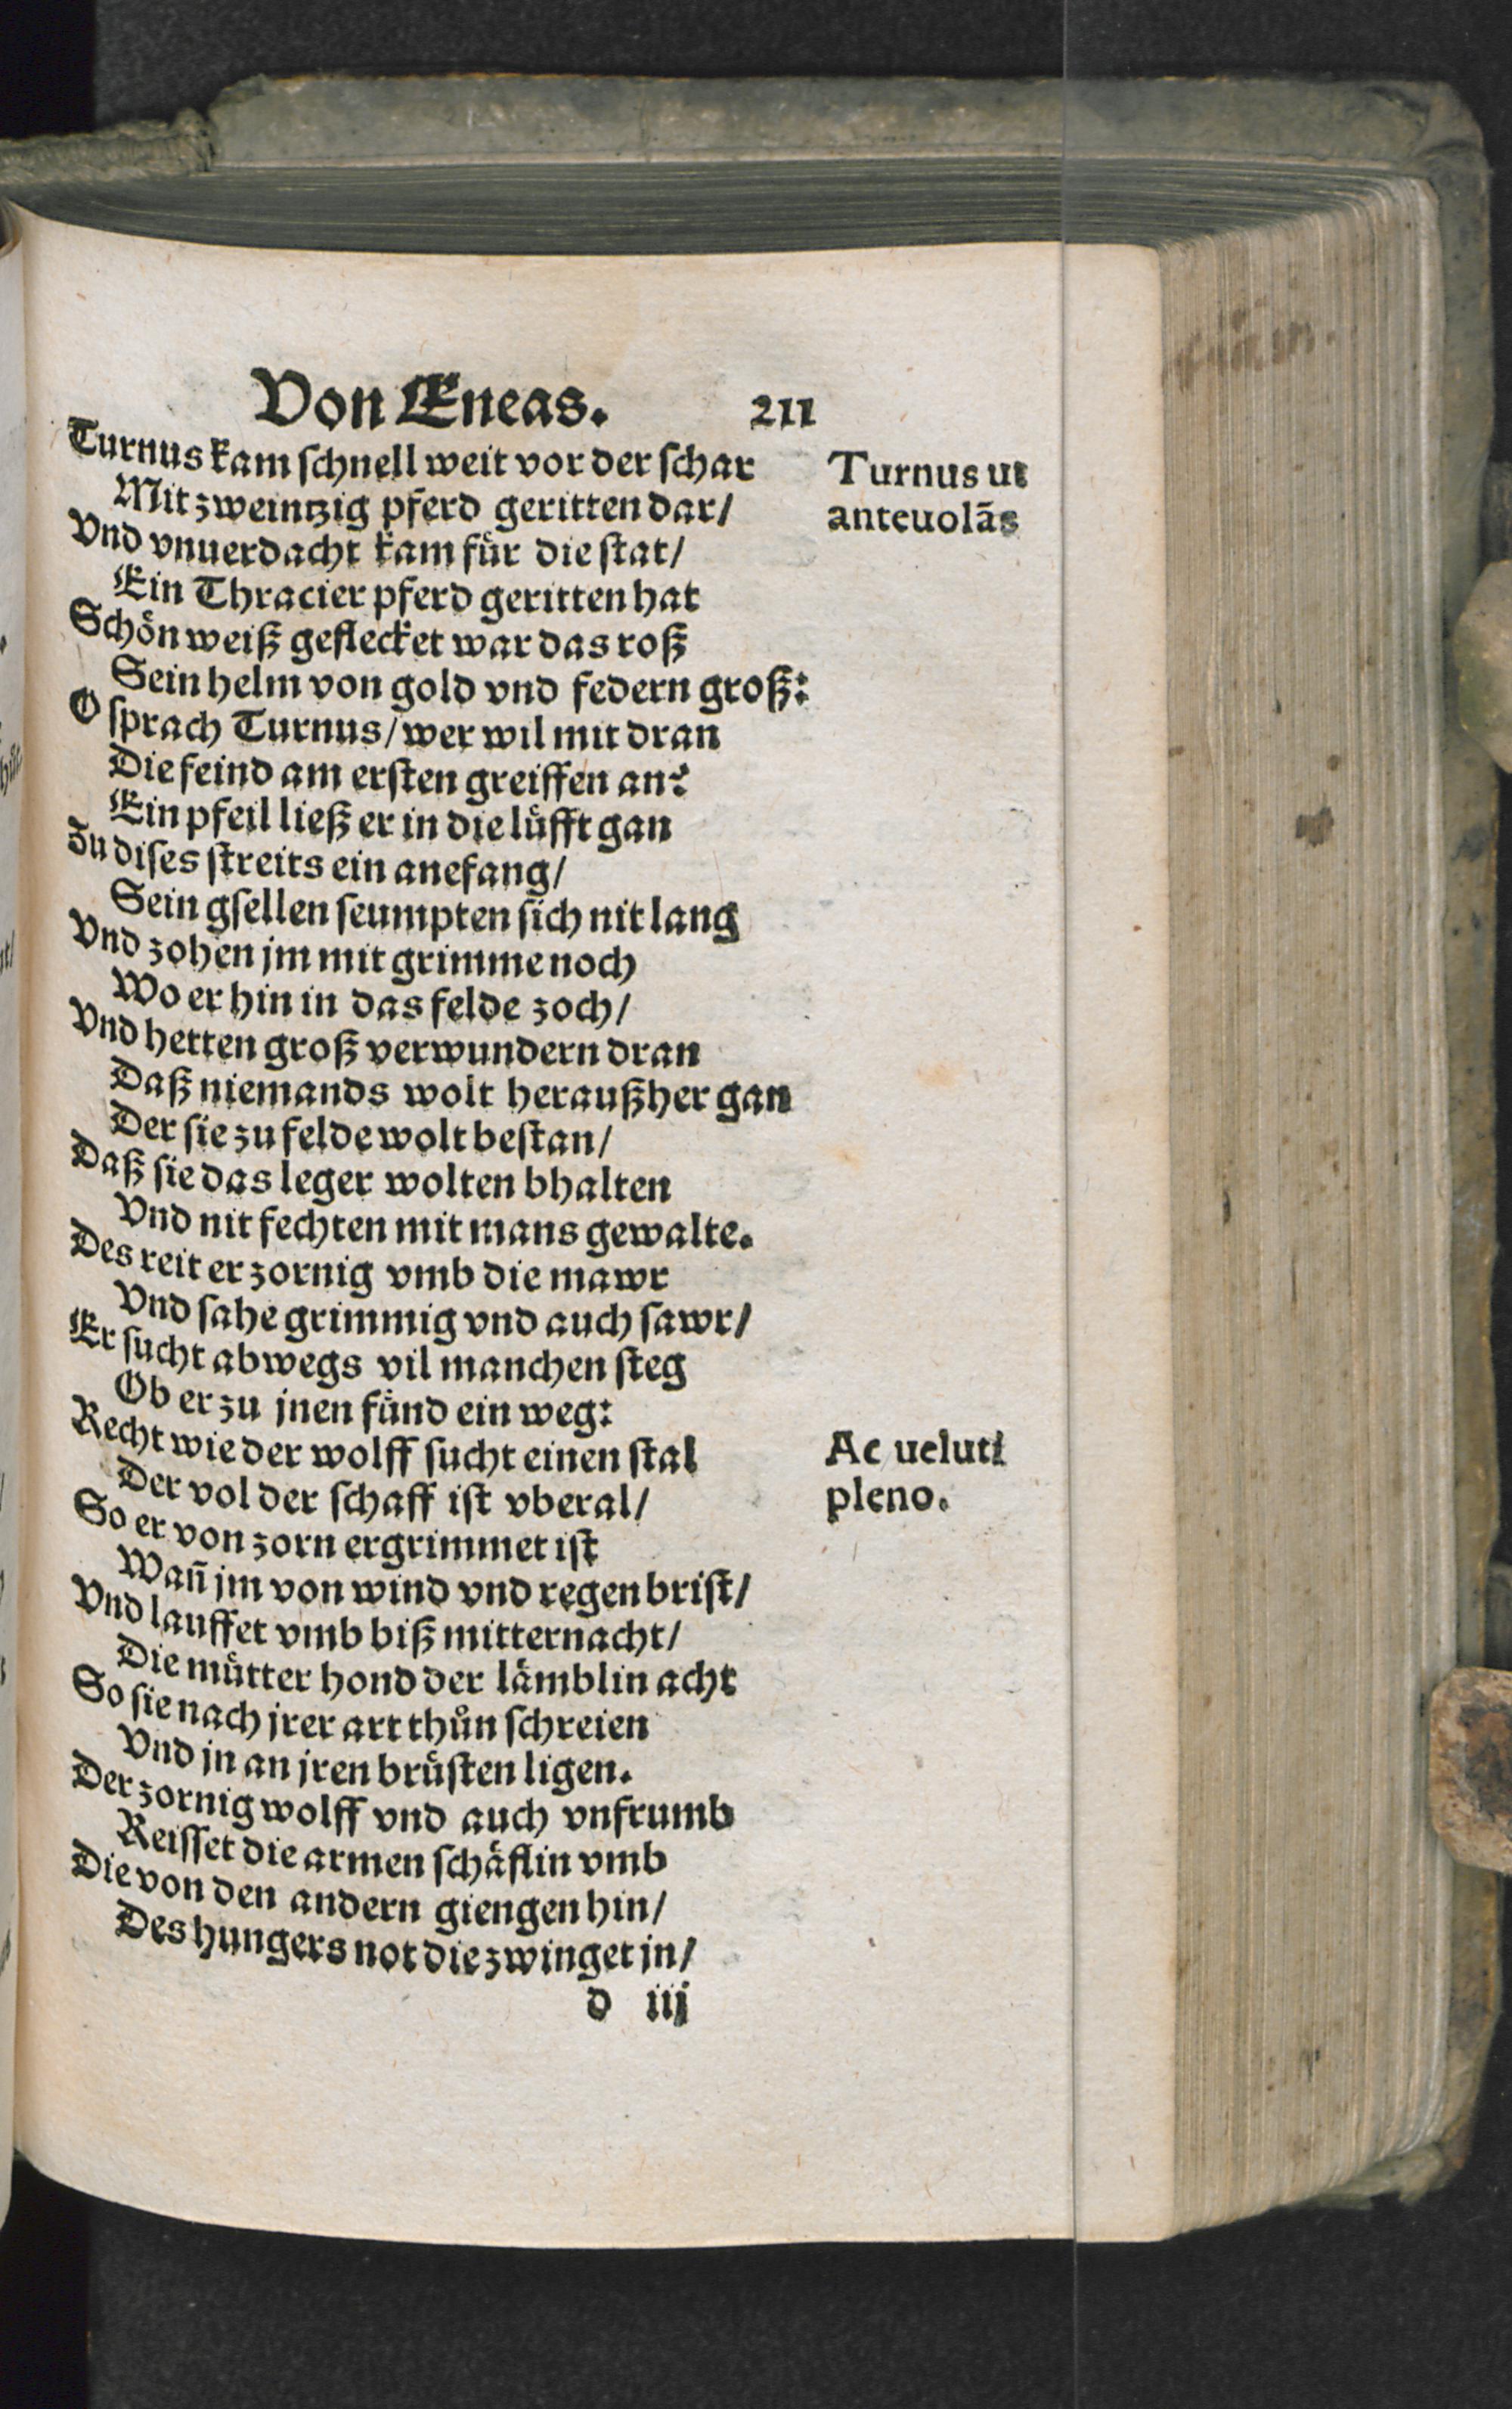 Von Eneas. 211
Turnus kam schnell weit vor der schar
Mit zweintzig pferd geritten dar/
Vnd vnuerdacht kam für die stat/
Ein Thracier pferd geritten hat
Schön weiß geflecket war das roß
Sein helm von gold vnd federn groß:
O sprach Turnus/ wer wil mit dran
Die feind am ersten greiffen an?
Ein pfeil ließ er in die lüfft gan
Zu dises streits ein anefang/
Sein gsellen seumpten sich nit lang
Vnd zohen jm mit grimme noch
Wo er hin in das felde zoch/
Vnd hetten groß verwundern dran
Daß niemands wolt heraußher gan
Der sie zu felde wolt bestan/
Daß sie das leger wolten bhalten
Vnd nit fechten mit mans gewalte.
Des reit er zornig vmb die mawr
Vnd sahe grimmig vnd auch sawr/
Er sucht abwegs vil manchen steg
Ob er zu jnen fünd ein weg:
Recht wie der wolff sucht einen stal
Der vol der schaff ist vberal/
So er von zorn ergrimmet ist
Wañ jm von wind vnd regen brist/
Vnd lauffet vmb biß mitternacht/
Die mütter hond der lämblin acht
So sie nach jrer art thůn schreien
Vnd jn an jren brüsten ligen.
Der zornig wolff vnd auch vnfrumb
Reisset die armen schäflin vmb
Die von den andern giengen hin/
Des hungers not die zwinget jn/
d iij
Turnus ut
anteuolãs
Ac ueluti
pleno.